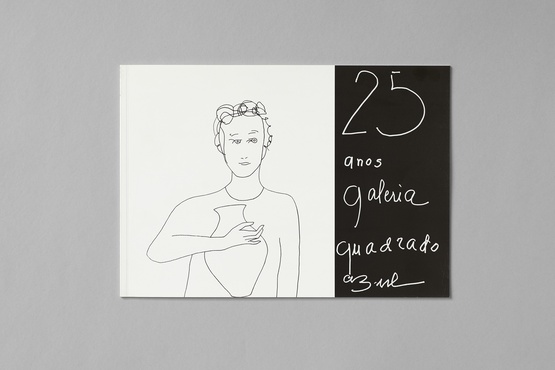 25
anos
galeria
quadrado
azul